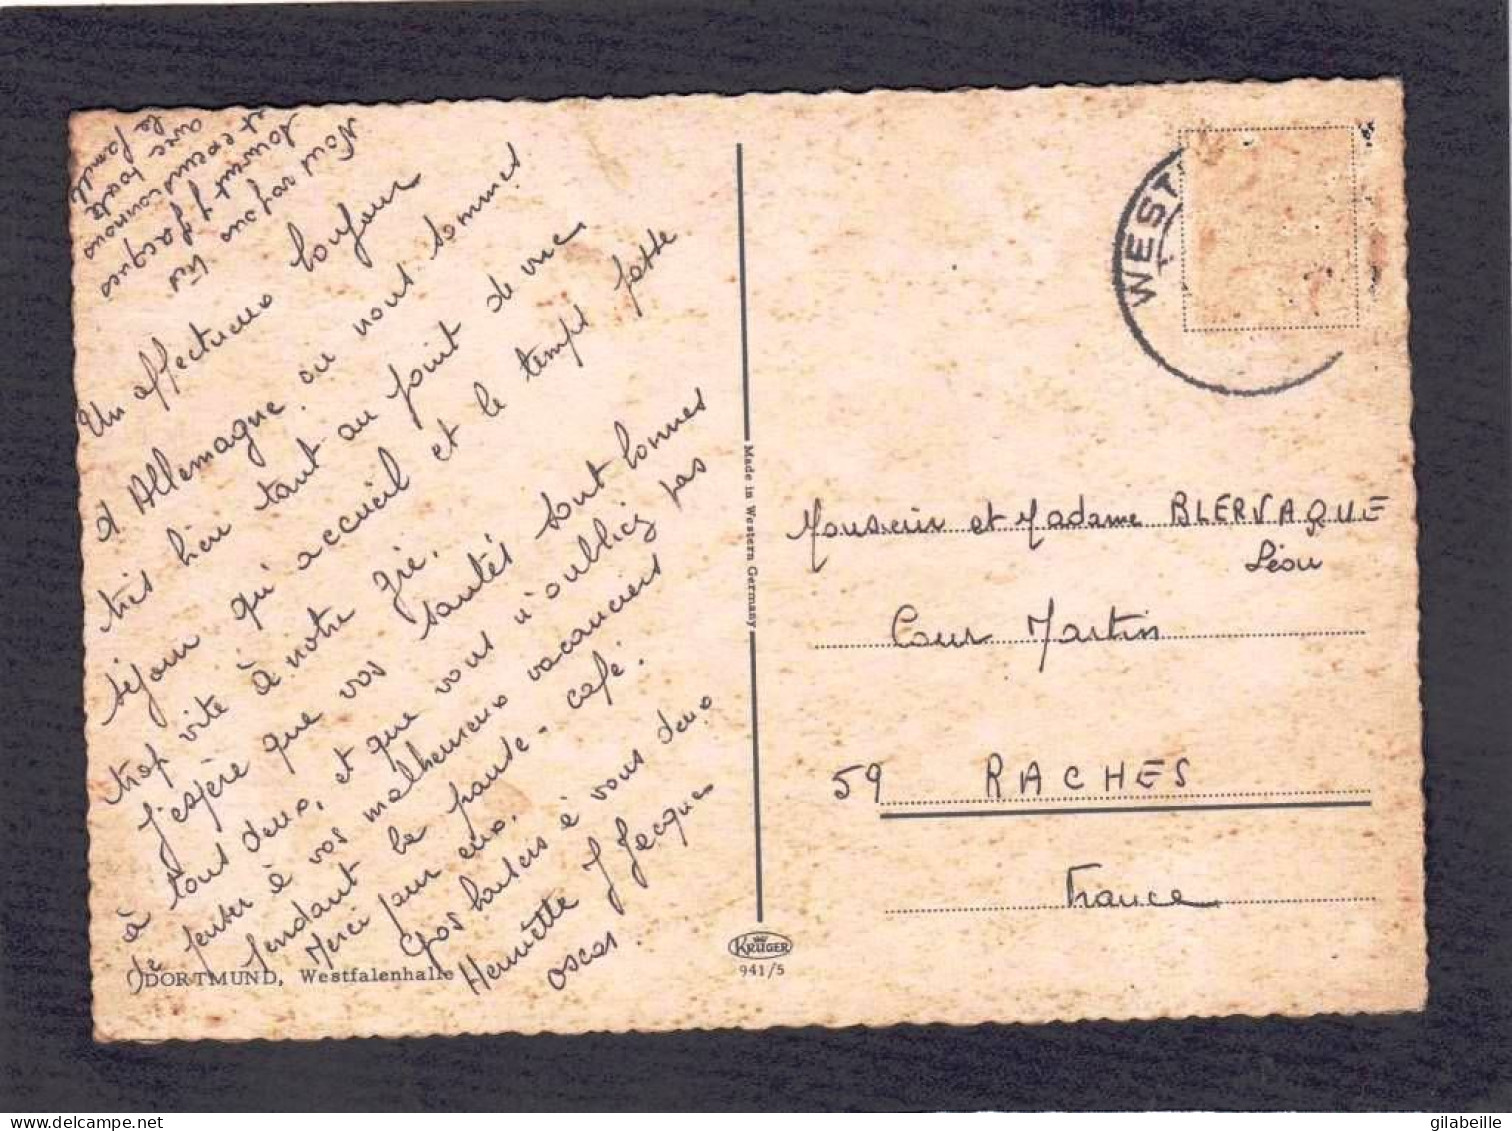 Un affectueux bonjour
d'Allemagne ou nous sommes
très bien tant au point de vue
séjour qu'accueil et le temps passe
trop vite à notre gré.
J'espère que vos santés sont bonnes
à tous deux, et que vous n'oubliez pas
de penser à vos malheureux vacanciers
pendant la pause-café.
Merci pour eux.
Gros baisers à vous deux
Henriette J Jacques
Oscar.
Nous
avec toute
la famille
DORTMUND, Westfalenhalle
Made in Western Germany
KRÜGER
941/5
WEST
Monsieur et Madame BLERVAQUE
Léon
Cour Martin
59 RACHES
France
gilabeille